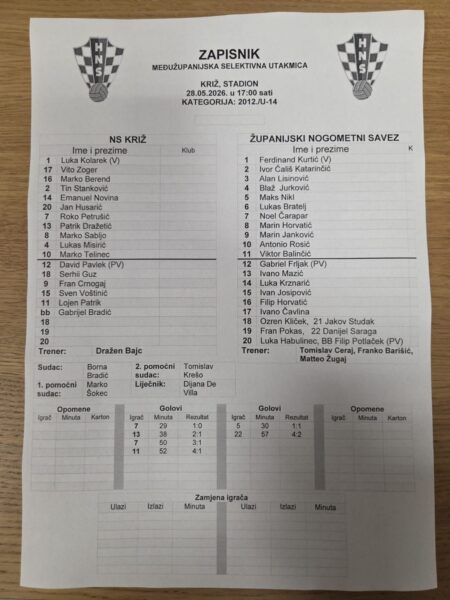 HNS
HNS
ZAPISNIK
MEĐUŽUPANIJSKA SELEKTIVNA UTAKMICA
KRIŽ, STADION
28.05.2026. u 17:00 sati
KATEGORIJA: 2012./U-14
NS KRIŽ
Ime i prezime Klub
1 Luka Kolarek (V)
17 Vito Zoger
16 Marko Berend
2 Tin Stanković
14 Emanuel Novina
20 Jan Husarić
7 Roko Petrušić
13 Patrik Dražetić
8 Marko Sabljo
4 Lukas Misirić
10 Marko Telinec
12 David Pavlek (PV)
18 Serhii Guz
9 Fran Crnogaj
15 Sven Voštinić
11 Lojen Patrik
bb Gabrijel Bradić
18
19
20
Trener: Dražen Bajc
ŽUPANIJSKI NOGOMETNI SAVEZ
Ime i prezime K
1 Ferdinand Kurtić (V)
2 Ivor Čališ Katarinčić
3 Alan Lisinović
4 Blaž Jurković
5 Maks Nikl
6 Lukas Bratelj
7 Noel Čarapar
8 Marin Horvatić
9 Marin Janković
10 Antonio Rosić
11 Viktor Balinčić
12 Gabriel Frljak (PV)
13 Ivano Mazić
14 Luka Krznarić
15 Ivan Josipović
16 Filip Horvatić
17 Ivano Čavlina
18 Ozren Kliček, 21 Jakov Studak
19 Fran Pokas, 22 Danijel Saraga
20 Luka Habulinec, BB Filip Potlaček (PV)
Trener: Tomislav Ceraj, Franko Barišić,
Matteo Žugaj
Sudac: Borna Bradić
2. pomoćni sudac: Tomislav Krešo
1. pomoćni sudac: Marko Šokec
Liječnik: Dijana De Villa
Opomene Golovi Golovi Opomene
Igrač Minuta Karton Igrač Minuta Rezultat Igrač Minuta Rezultat Igrač Minuta Karton
7 29 1:0 5 30 1:1
13 38 2:1 22 57 4:2
7 50 3:1
11 52 4:1
Zamjena igrača
Ulazi Izlazi Minuta Ulazi Izlazi Minuta